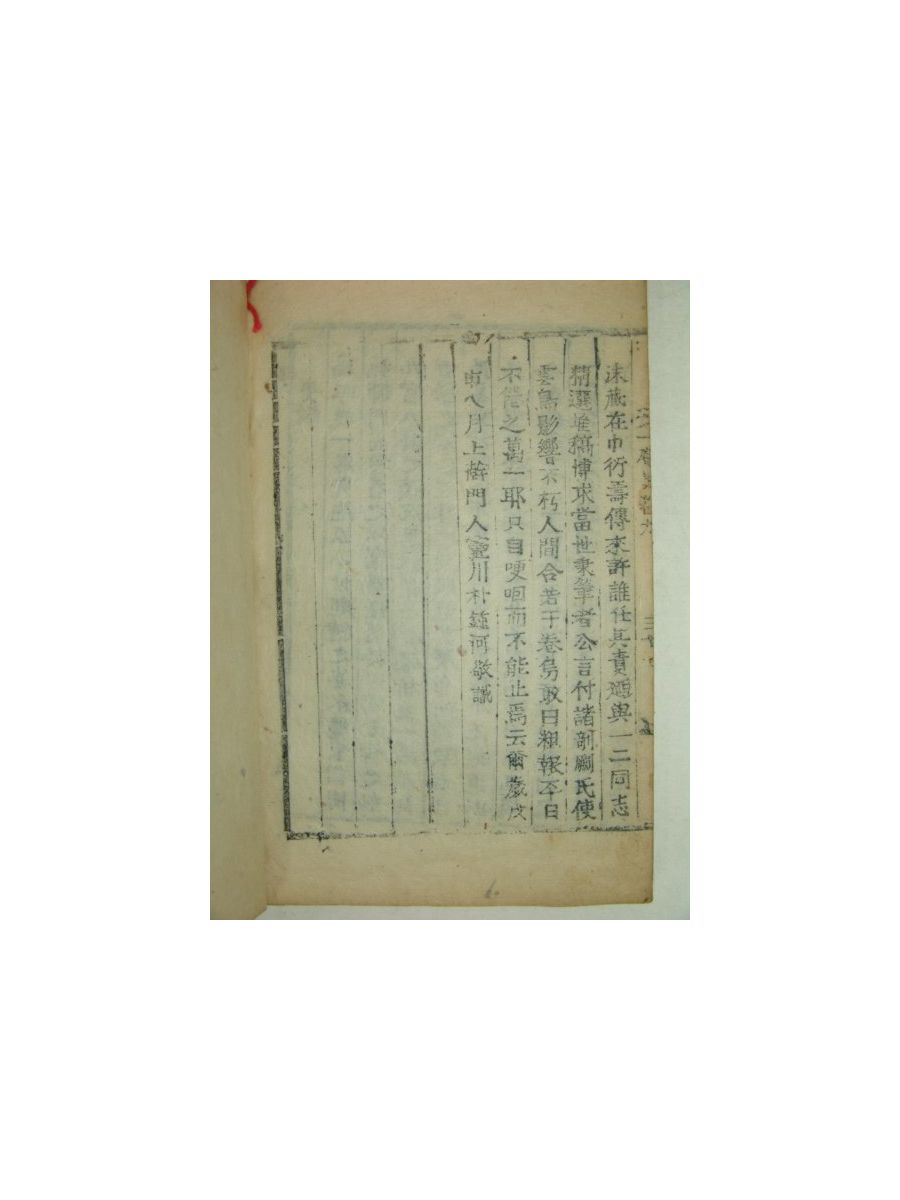 沫藏在巾衍壽傳來許誰任其責廼與一二同志
精選堆稿博求當世秉筆者公言付諸剞劂氏使
雲鳥影響不朽人間合若干卷烏敢曰粗報平日
不能之萬一耶只自哽咽而不能止焉云爾歲戊
申八月上澣門人靈川朴鍾河敬識